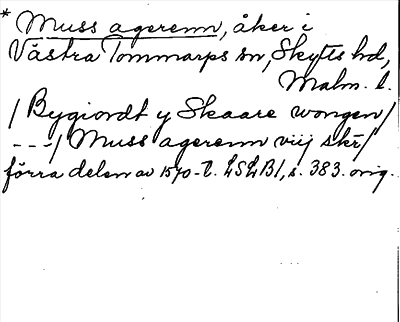 * Muss agerenn, åker i
Västra Tommarps sn, Skytts hd,
Malm. l.
/ Bygiordt y Skaare wongen /
---/ Muss agerenn viij skr/
förra delen av 1570-t. LSLB1, s. 383. orig.